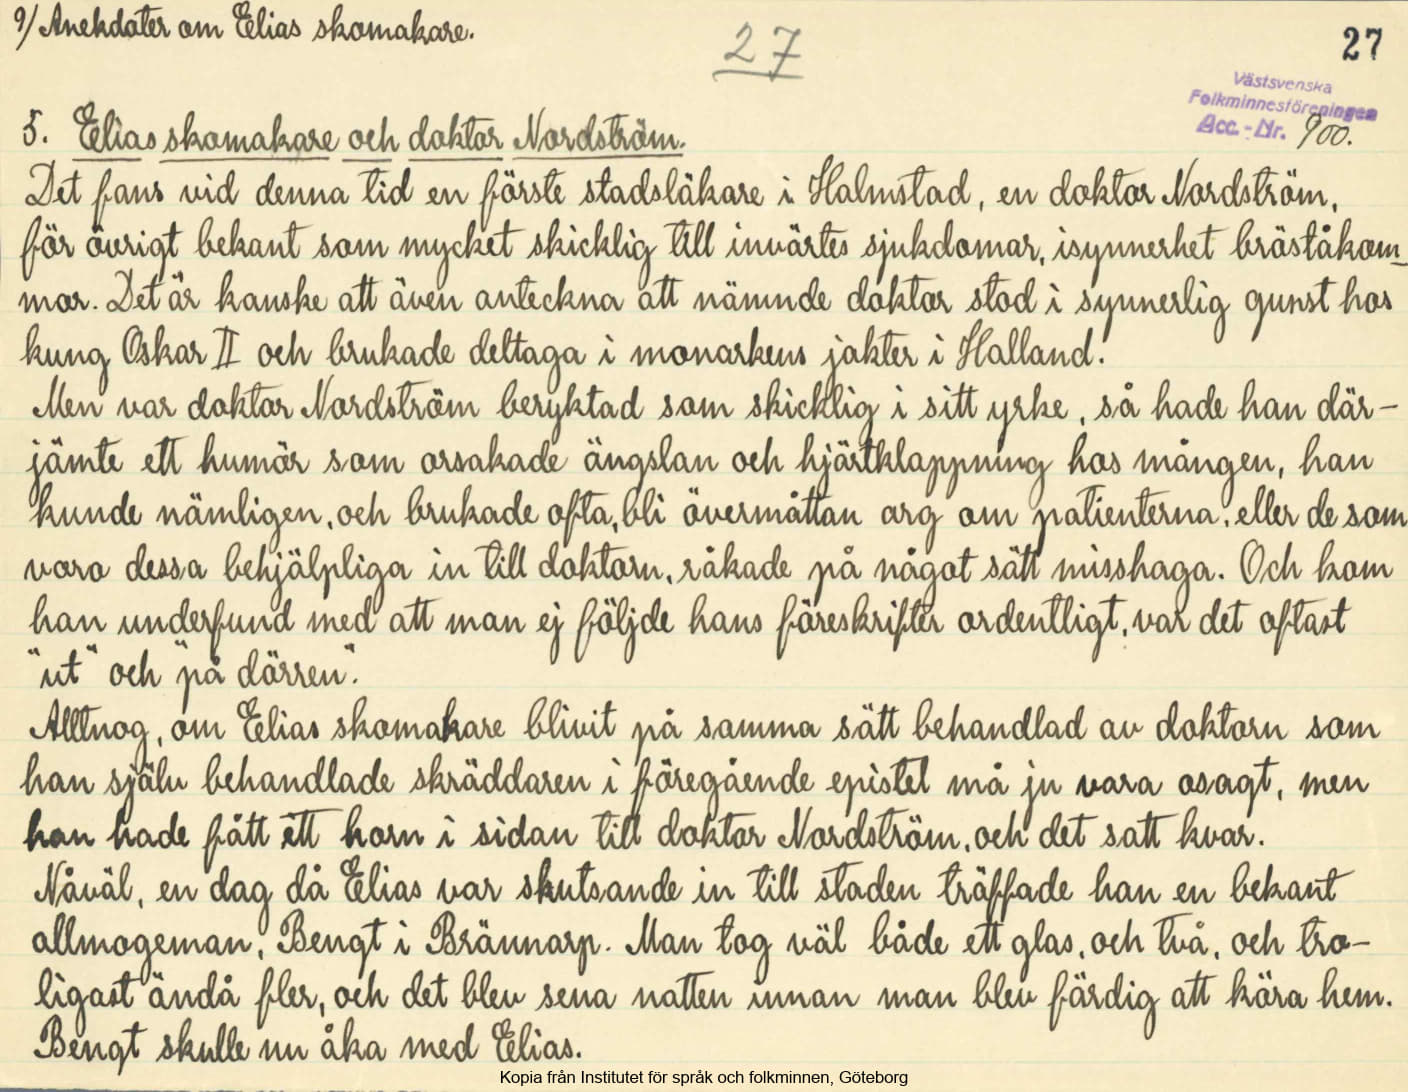 9/ Anekdoter om Elias skomakare.
27
27
Västsvenska
Folkminnesföreningen
Acc.-Nr. 900.
5. Elias skomakare och doktor Nordström.
Det fans vid denna tid en förste stadsläkare i Halmstad, en doktor Nordström,
för övrigt bekant som mycket skicklig till invärtes sjukdomar, isynnerhet bröståkom-
mor. Det är kanske att även anteckna att nämnde doktor stod i synnerlig gunst hos
kung Oskar II och brukade deltaga i monarkens jakter i Halland.
Men var doktor Nordström beryktad som skicklig i sitt yrke, så hade han där-
jämte ett humör som orsakade ängslan och hjärtklappning hos mången, han
kunde nämligen, och brukade ofta, bli övermåttan arg om patienterna, eller de som
voro dessa behjälpliga in till doktorn, råkade på något sätt misshaga. Och kom
han underfund med att man ej följde hans föreskrifter ordentligt, var det oftast
"ut" och "på dörren".
Alltnog, om Elias skomakare blivit på samma sätt behandlad av doktorn som
han själv behandlade skräddaren i föregående epistel må ju vara osagt, men
han hade fått ett horn i sidan till doktor Nordström, och det satt kvar.
Nåväl, en dag då Elias var skutsande in till staden träffade han en bekant
allmogeman, Bengt i Brännarp. Man tog väl både ett glas, och två, och tro-
ligast ändå fler, och det blev sena natten innan man blev färdig att köra hem.
Bengt skulle nu åka med Elias.
Kopia från Institutet för språk och folkminnen, Göteborg